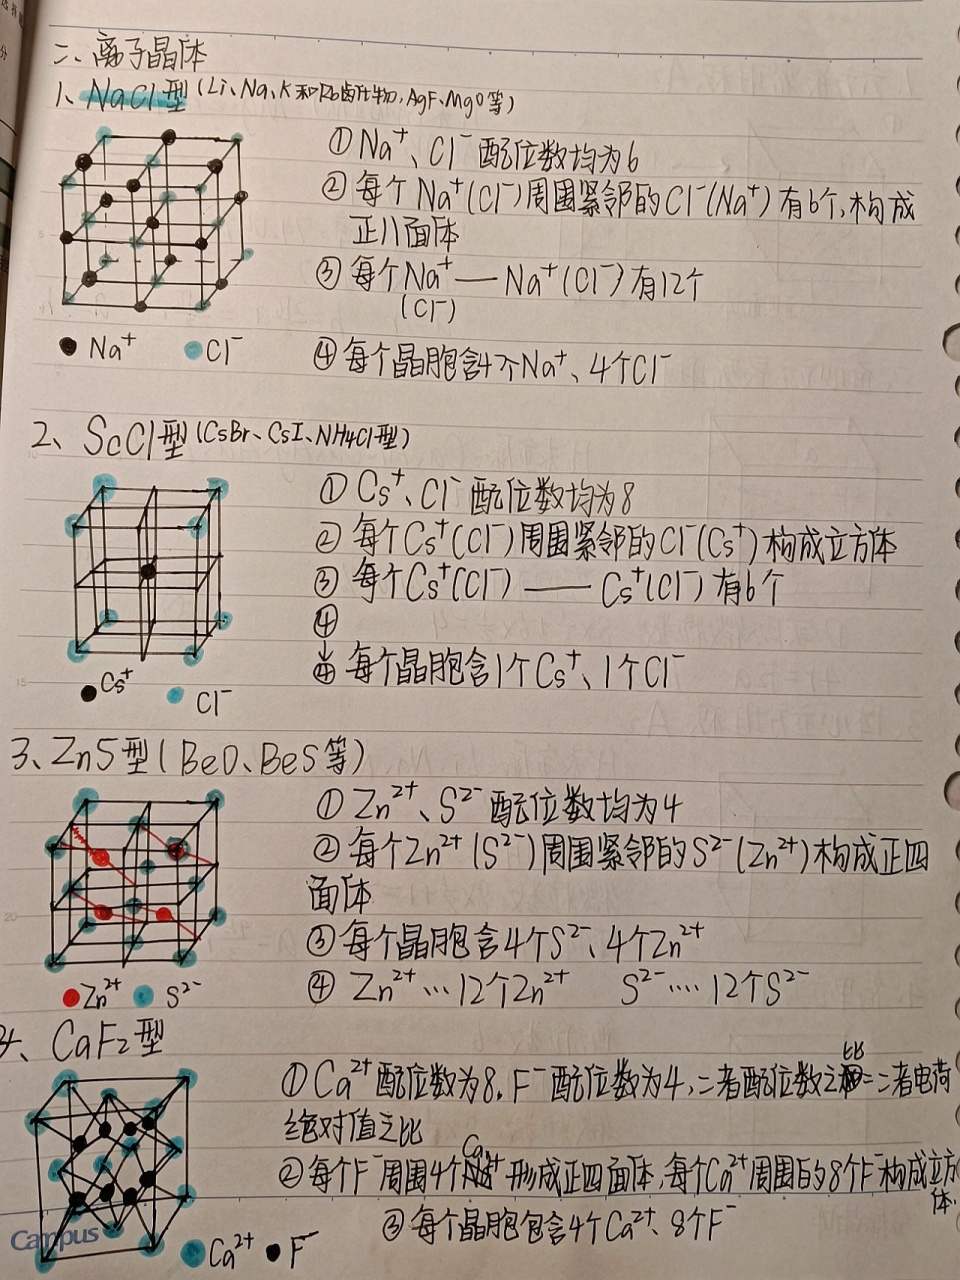 二、离子晶体
1、NaCl型(Li、Na、K和Rb卤化物,AgF、MgO等)
① Na⁺、Cl⁻配位数均为6
② 每个Na⁺(Cl⁻)周围紧邻的Cl⁻(Na⁺)有6个,构成
正八面体
③ 每个Na⁺—Na⁺(Cl⁻)有12个
(Cl⁻)
● Na⁺ ● Cl⁻
④ 每个晶胞含4个Na⁺、4个Cl⁻
2、ScCl型(CsBr、CsI、NH4Cl型)
① Cs⁺、Cl⁻配位数均为8
② 每个Cs⁺(Cl⁻)周围紧邻的Cl⁻(Cs⁺)构成立方体
③ 每个Cs⁺(Cl⁻)——Cs⁺(Cl⁻)有6个
④
↓
④ 每个晶胞含1个Cs⁺、1个Cl⁻
● Cs⁺ ● Cl⁻
3、ZnS型(BeO、BeS等)
① Zn²⁺、S²⁻配位数均为4
② 每个Zn²⁺(S²⁻)周围紧邻的S²⁻(Zn²⁺)构成正四
面体
③ 每个晶胞含4个S²⁻、4个Zn²⁺
④ Zn²⁺…12个Zn²⁺ S²⁻….12个S²⁻
● Zn²⁺ ● S²⁻
4、CaF₂型
① Ca²⁺配位数为8,F⁻配位数为4,二者配位数之比=二者电荷
绝对值之比
② 每个F⁻周围4个Ca²⁺形成正四面体,每个Ca²⁺周围的8个F⁻构成立方
体.
③ 每个晶胞包含4个Ca²⁺、8个F⁻
Campus
● Ca²⁺ ● F⁻